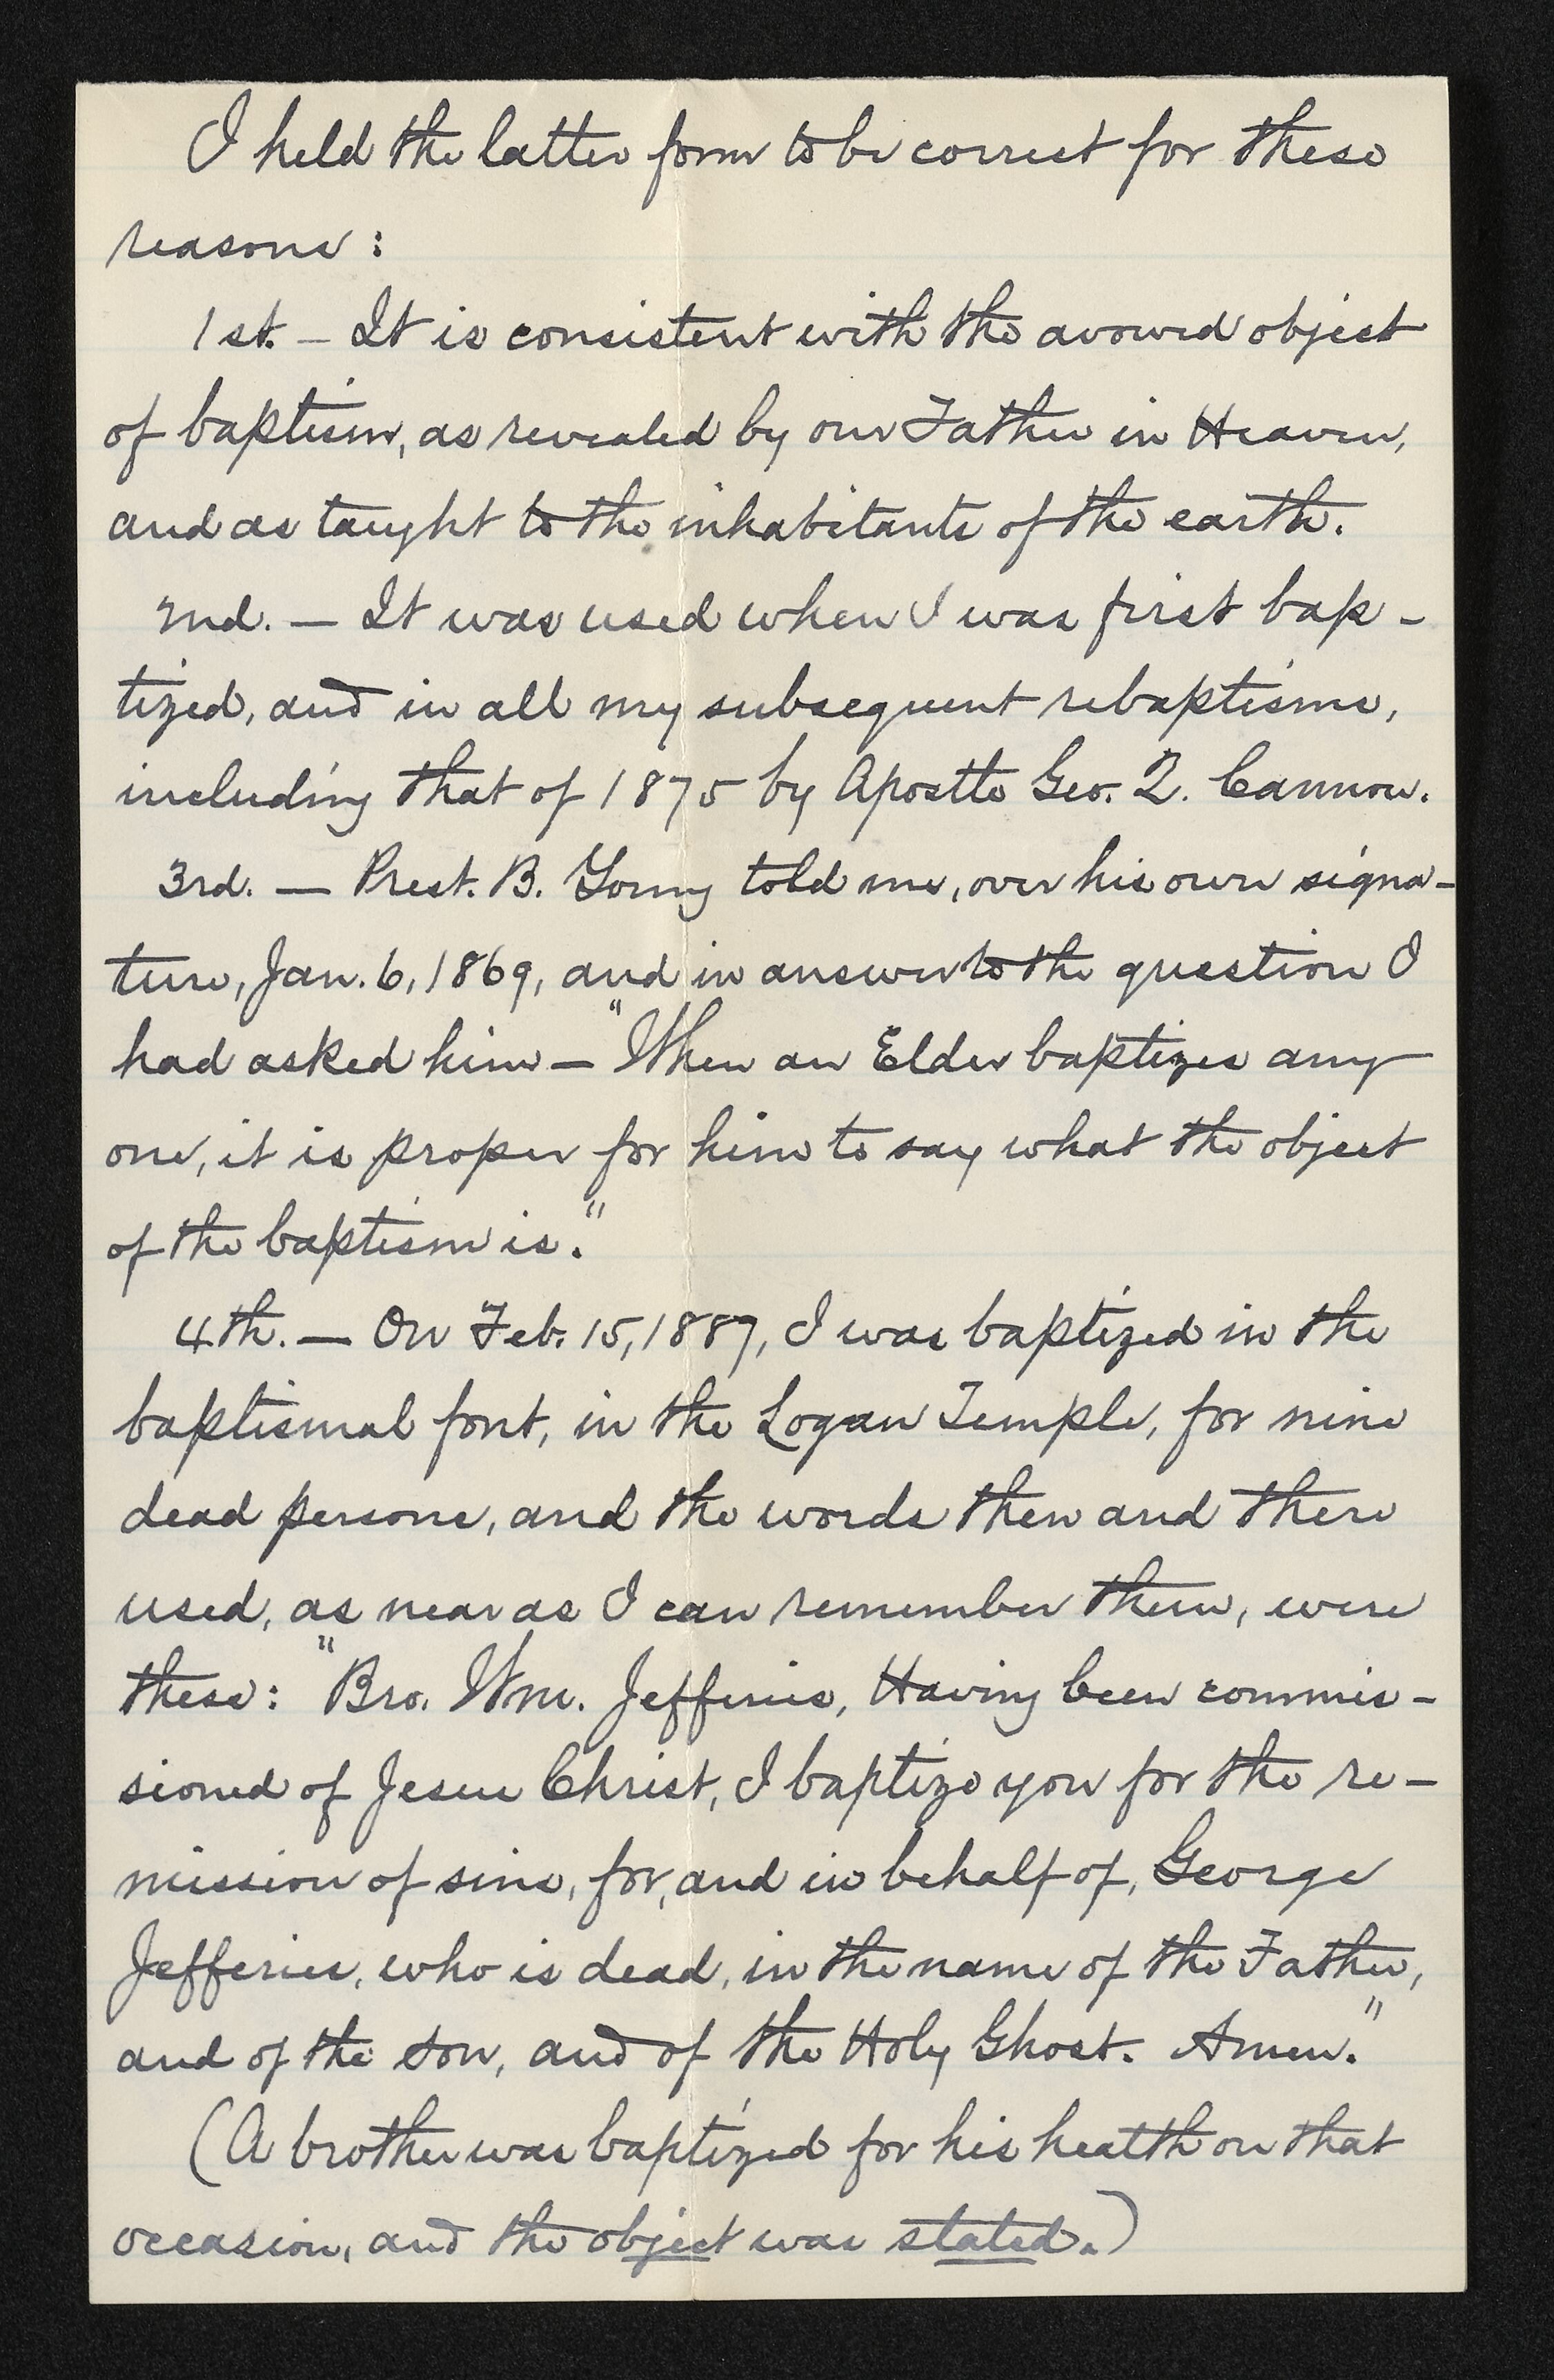 I held the latter form to be correct for these
reasons:
1st. – It is consistent with the avowed object
of baptism, as revealed by our Father in Heaven,
and as taught to the inhabitants of the earth.
2nd. — It was used when I was first bap-
tized, and in all my subsequent rebaptisms,
including that of 1875 by Apostle Geo. Q. Cannon.
3rd. — Prest. B. Young told me, over his own signa-
ture, Jan. 6, 1869, and in answer to the question I
had asked him — "When an Elder baptizes any
one, it is proper for him to say what the object
of the baptism is."
4th. — On Feb. 15, 1887, I was baptized in the
baptismal font, in the Logan Temple, for nine
dead persons, and the words then and there
used, as near as I can remember them, were
these: "Bro. Wm. Jefferies, Having been commis-
sioned of Jesus Christ, I baptize you for the re-
mission of sins, for, and in behalf of, George
Jefferies, who is dead, in the name of the Father,
and of the Son, and of the Holy Ghost. Amen."
(A brother was baptized for his health on that
occasion, and the object was stated.)